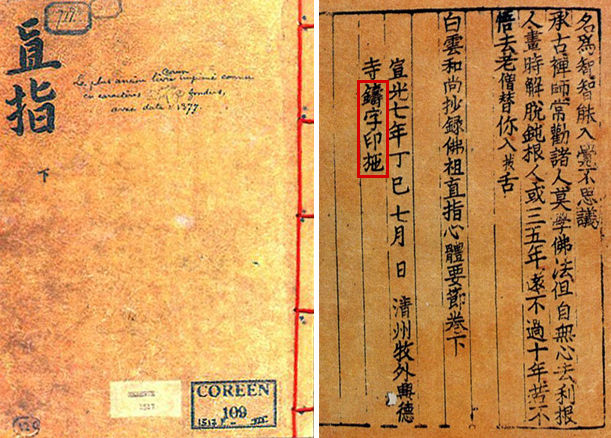 直指
下
Le plus ancien livre coréen imprimé connu
en caractères fondus,
avec date = 1377.
COREEN
109
名爲智智能入覺不思議
承古禪師常勸諸人莫學佛法但自無心去利根
人畫時解脫鈍根人或三五年遠不過十年若不
悟去老僧替你入拔舌
白雲和尚抄錄佛祖直指心體要節卷下
宣光七年丁巳七月 日 清州牧外興德
寺鑄字印施